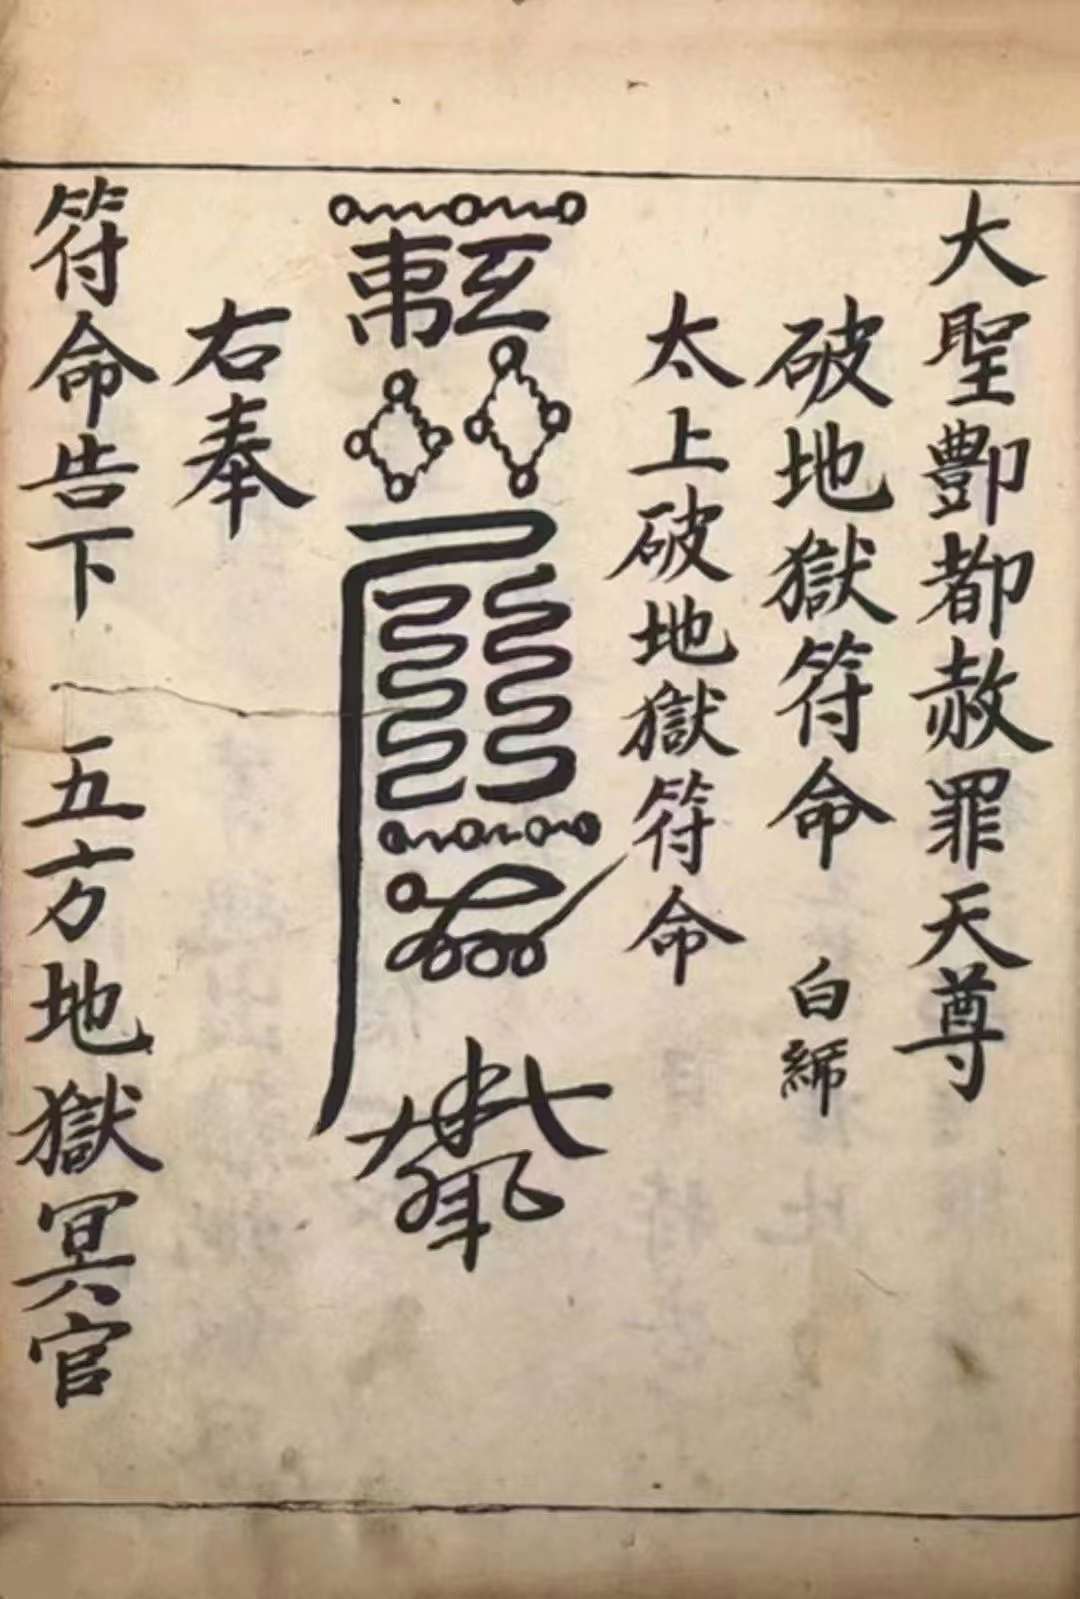 大聖酆都赦罪天尊
破地獄符命 白締
太上破地獄符命
右奉
符命告下 五方地獄冥官